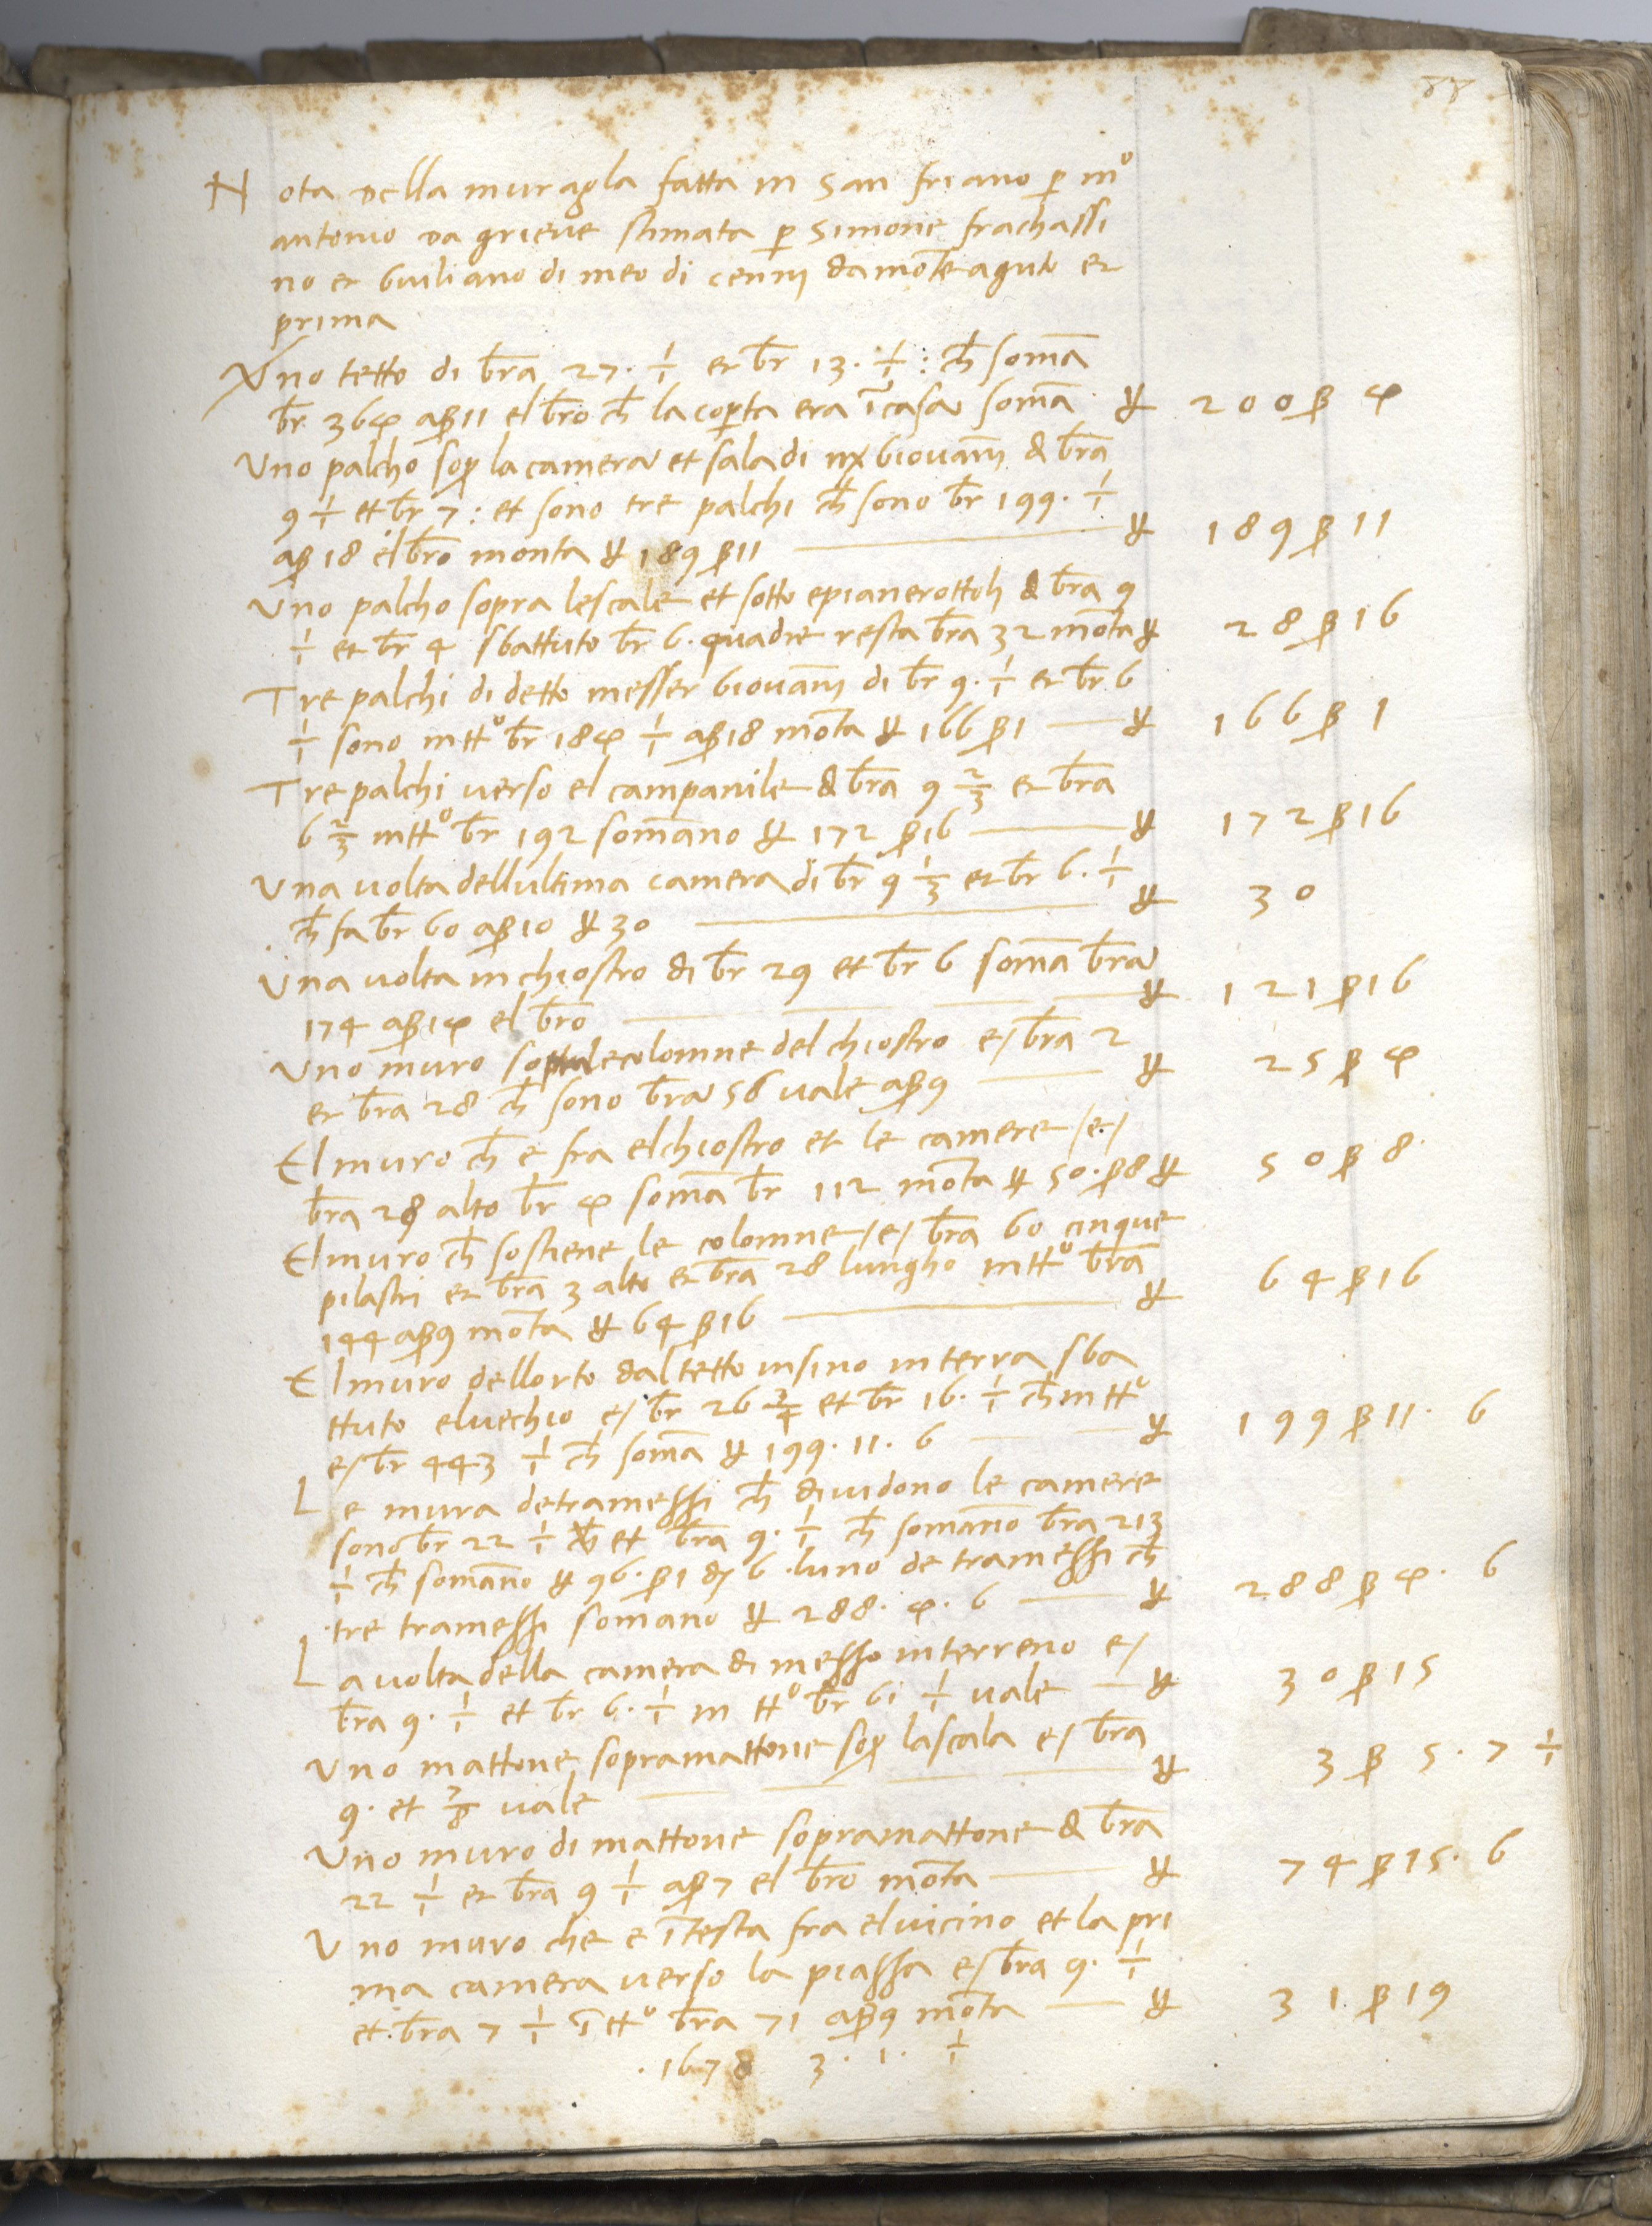 Nota della muragla fatta in san friano p mº
antonio da grieve stimata p simone frachassi
no et Giuliano di meo di cenni da mōte aguto et
prima
Uno tetto di b̄ra 27. 1/1 et b̄r 13. 1/1 : ch̄ somā
b̄r. 365 aβ 11 el b̄ro ch̄ la coꝑta era ī casa somā ꝟ 200 β 5
Uno palcho soꝑ la camera et sala di mẋ Giovāni di b̄ra
9 1/1 et b̄r 7 : et sono tre palchi ch̄ sono b̄r 199. 1/1
aβ 18 el b̄ro monta ꝟ 189 β 11 — ꝟ 189 β 11
Uno palcho sopra le scale et sotto e pianerottoli di b̄ra 9
1/1 et b̄r 4 sbattuto b̄r 6. quadre resta b̄ra 32 mōta ꝟ 28 β 16
Tre palchi di detto messer Giovāni di b̄r 9. 1/1 et b̄r 6
1/1 sono in ttº b̄r 185 1/1 aβ 18 mōta ꝟ 166 β 1 — ꝟ 166 β 1
Tre palchi verso el campanile di b̄ra 9 2/3 et b̄ra
6 2/3 in ttº b̄r 192 somāno ꝟ 172 β 16 — ꝟ 172 β 16
Una volta dell ultima camera di b̄r 9 1/3 et b̄r 6. 1/1
ch̄ fa b̄r 60 aβ 10 ꝟ 30 — ꝟ 30
Una volta in chiostro di b̄r 29 et b̄r 6 somā b̄ra
174 aβ 15 el b̄ro — ꝟ 121 β 16
Uno muro le colonne del chiostro e/ b̄ra 2
et b̄ra 28 ch̄ sono b̄ra 56 vale aβ 9 — ꝟ 25 β 5
El muro ch̄ e fra el chiostro et le camere /e/
b̄ra 28 alto b̄r 5 somā b̄r 112 mōta ꝟ 50. β 8 ꝟ 50 β 8
El muro ch̄ sostiene le colonne /e/ b̄ra 60 cinque
pilastri et b̄ra 3 alto et b̄ra 28 lungho in ttº b̄ra
144 aβ 9 mōta ꝟ 64 β 16 — ꝟ 64 β 16
El muro dell orto dal tetto insino in terra sba
ttuto el vechio e/ b̄r 26 3/4 et b̄r 16. 1/1 ch̄ in ttº
e/ b̄r 443 1/1 ch̄ somā ꝟ 199. 11. 6 — ꝟ 199 β 11. 6
Le mura de tramessi ch̄ dividono le camere
sono b̄r 22 1/1 et b̄ra 9. 1/1 ch̄ somāno b̄ra 213
1/1 ch̄ somāno ꝟ 96. β 1 d 6. luno de tramessi ch̄
tre tramessi somano ꝟ 288. 5. 6 — ꝟ 288 β 5. 6
La volta della camera di messo in terreno e/
b̄ra 9. 1/1 et b̄r 6. 1/1 in ttº b̄r 61 1/1 vale — ꝟ 30 β 15
Uno mattone sopramattone soꝑ la scala e/ b̄ra
9. et 7/8 vale — ꝟ 3 β 5. 7 1/1
Uno muro di mattone sopramattone di b̄ra
22 1/1 et b̄ra 9 1/1 aβ 7 el b̄ro mōta — ꝟ 74 β 15. 6
Uno muro che e ī testa fra el vicino et la pri
ma camera verso la piassa e/ b̄ra 9. 1/1
et b̄ra 7 1/1 ī ttº b̄ra 71 aβ 9 mōta — ꝟ 31 β 19
. 1678 3. 1. 1/1